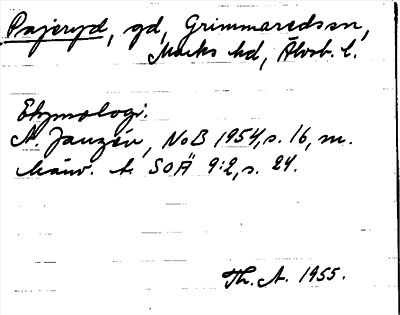 Pajeryd, gd, Grimmaredssn,
Marks hd, Älvsb. l.
Etymologi.
A. Janzén, NoB 1954, s. 16, m.
hänv. t. SOÄ 9:2, s. 24.
Th. A. 1955.